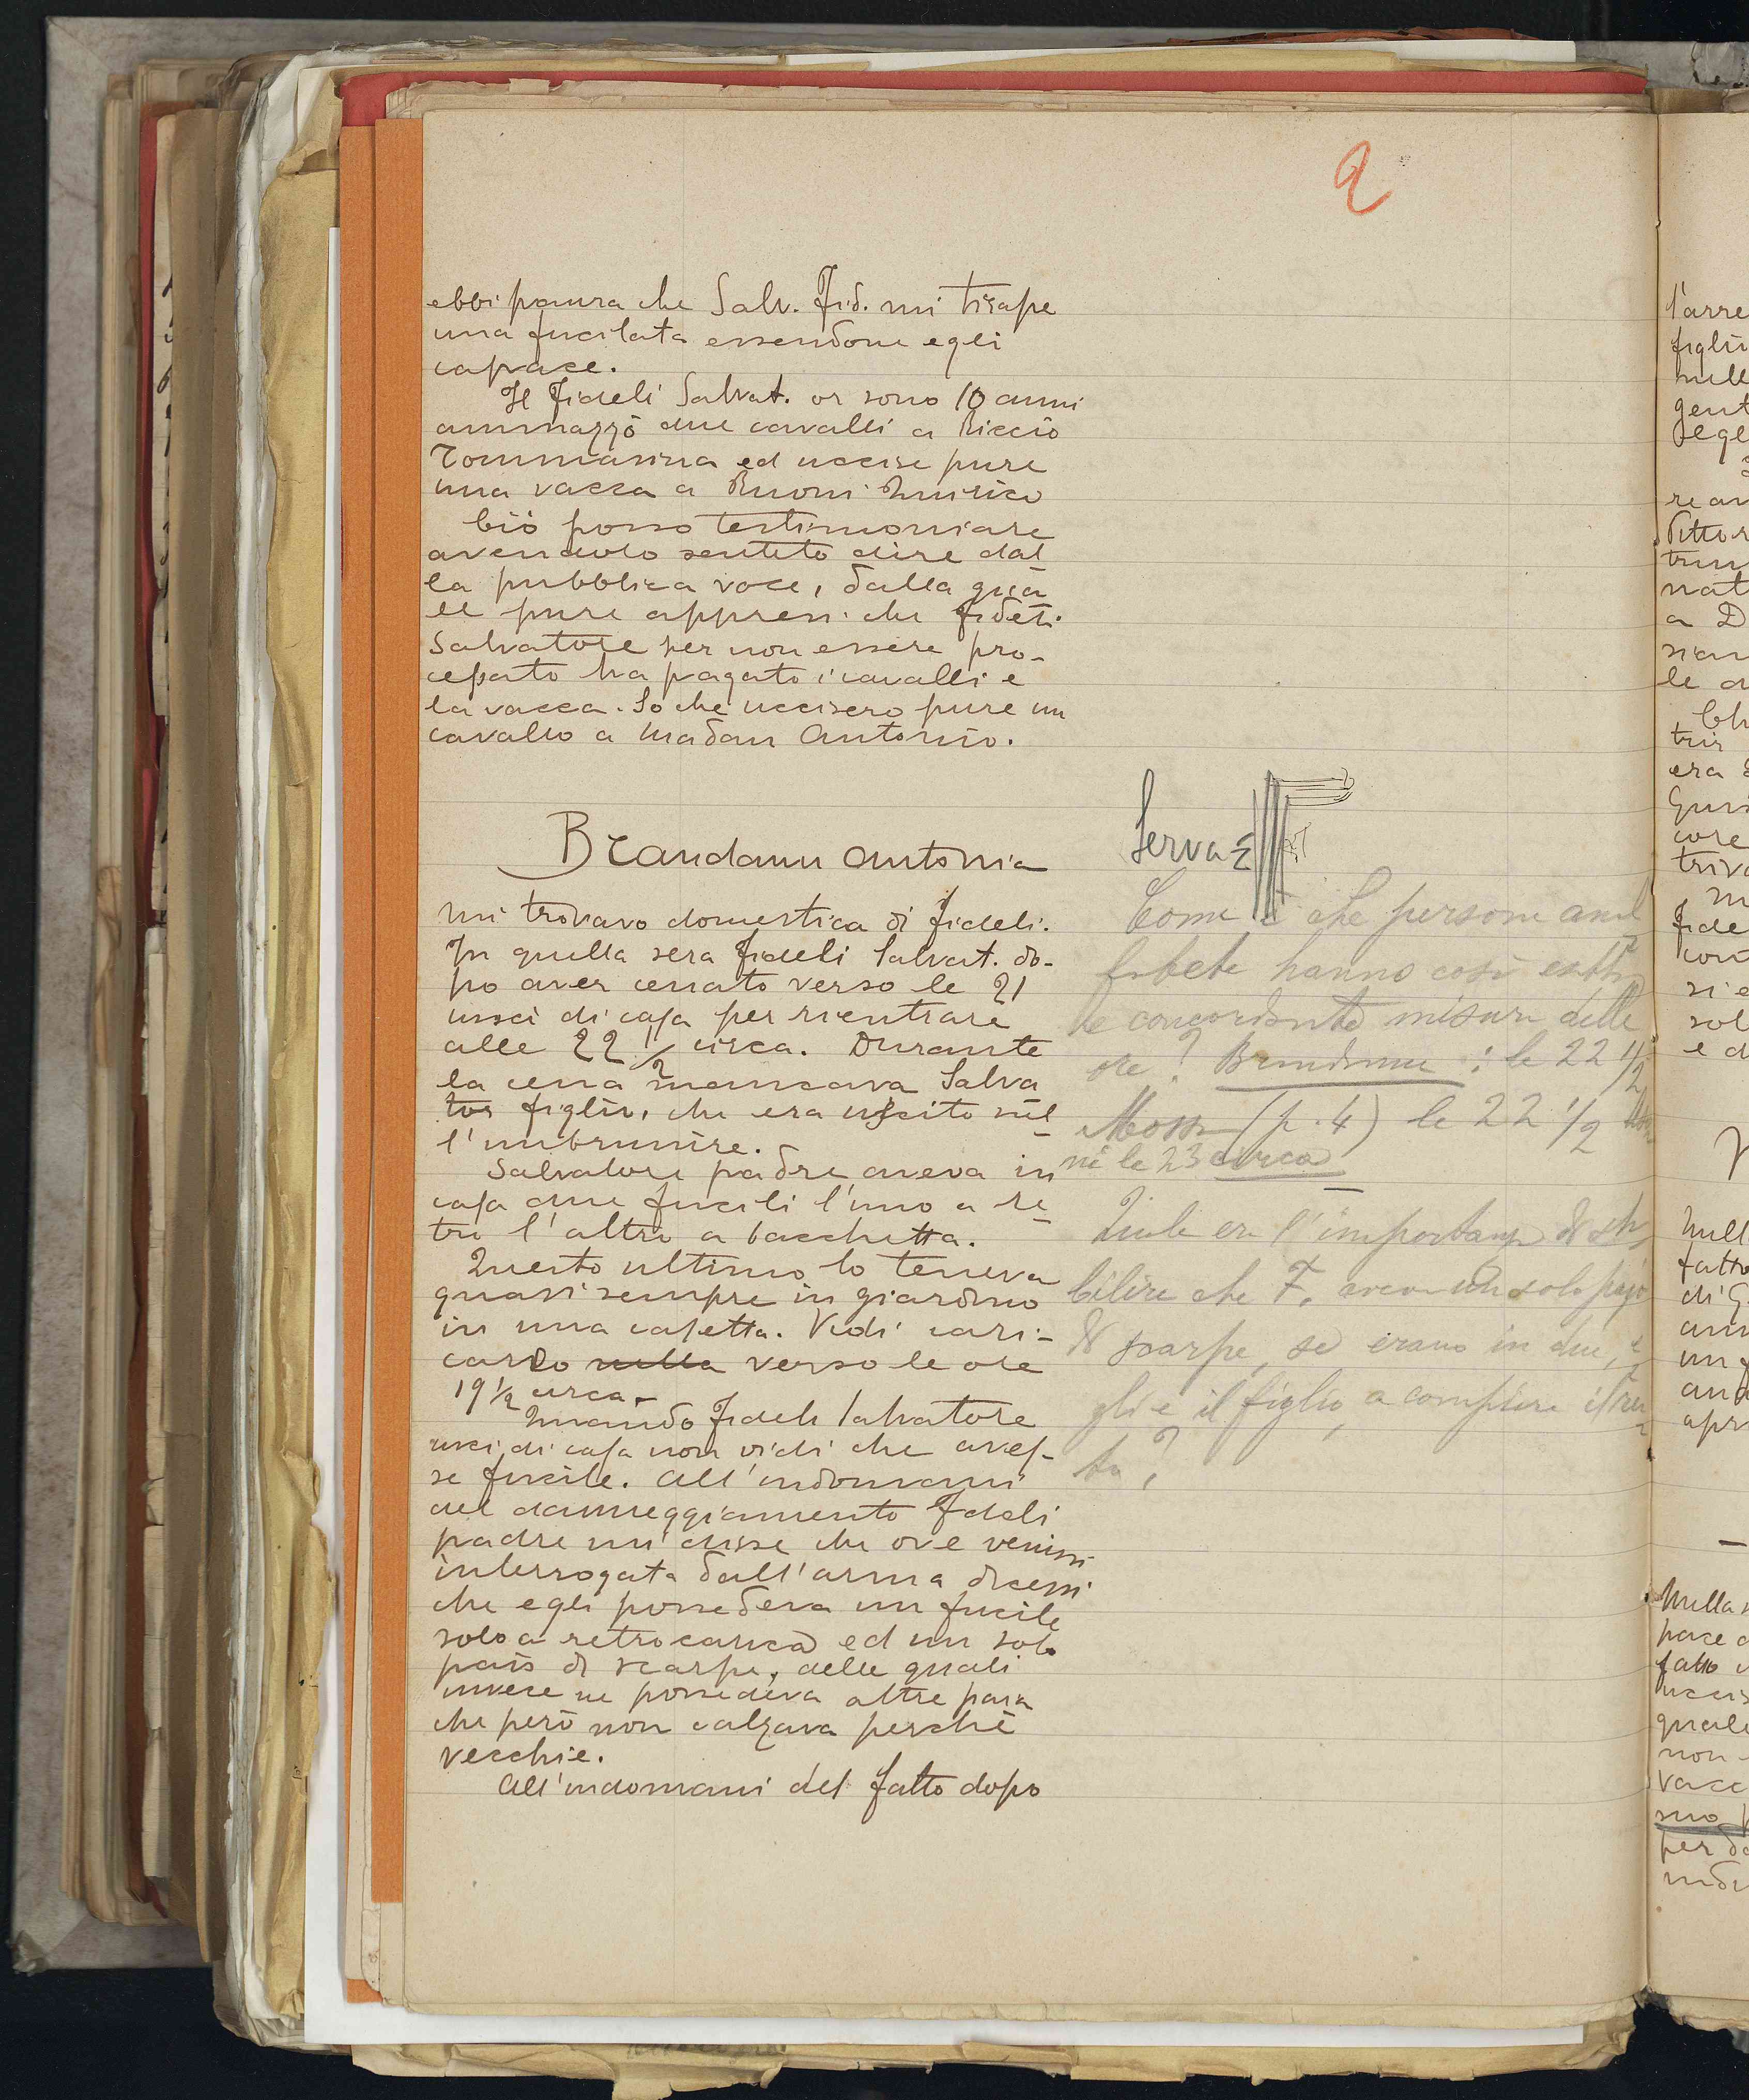 2
ebbi paura che Salv. Fid. mi tirasse
una fucilata essendone egli
capace.
Il Fideli Salvat. or sono 10 anni
ammazzò due cavalli a Riccio
Tommasina ed uccise pure
una vacca a Buoni
Ciò posso testimoniare
avendolo sentito dire dal
la pubblica voce, dalla qua
le pure appresi che Fideli
Salvatore per non essere pro-
cessato ha pagato i cavalli e
la vacca. So che uccisero pure un
cavallo a Madau Antonio.
Brandanu Antonia
mi trovavo domestica di Fideli.
In quella sera Fideli Salvat. do-
po aver cenato verso le 21
uscì di casa per rientrare
alle 22 1/2 circa. Durante
la cena mancava Salva
tor figlio, che era uscito sul
l'imbrunire.
Salvatore padre aveva in
casa due fucili l'uno a re
tro l'altro a bacchetta.
Questo ultimo lo teneva
quasi sempre in giardino
in una casetta. Vidi cari-
carlo nella verso le ore
19 1/2 circa.
Quando Fideli Salvatore
uscì di casa non vidi che aves-
se fucile. All'indomani
del danneggiamento Fideli
padre mi disse che ove venissi
interrogata dall'arma dicessi
che egli possedeva un fucile
solo a retrocarica ed un solo
paio di scarpe, delle quali
invece ne possedeva altre paia
che però non calzava perchè
vecchie.
All'indomani del fatto dopo
Serva
Come è che persone anal
fabete hanno così esatte
e concordante misura delle
ore? Brandanu: le 22 1/2
Mossa (p. 4) le 22 1/2
ni le 23 circa
Quale era l'importanza di sta
bilire che F. aveva un solo pajo
di scarpe, se erano in due, e
gli e il figlio, a compiere il rea
to?